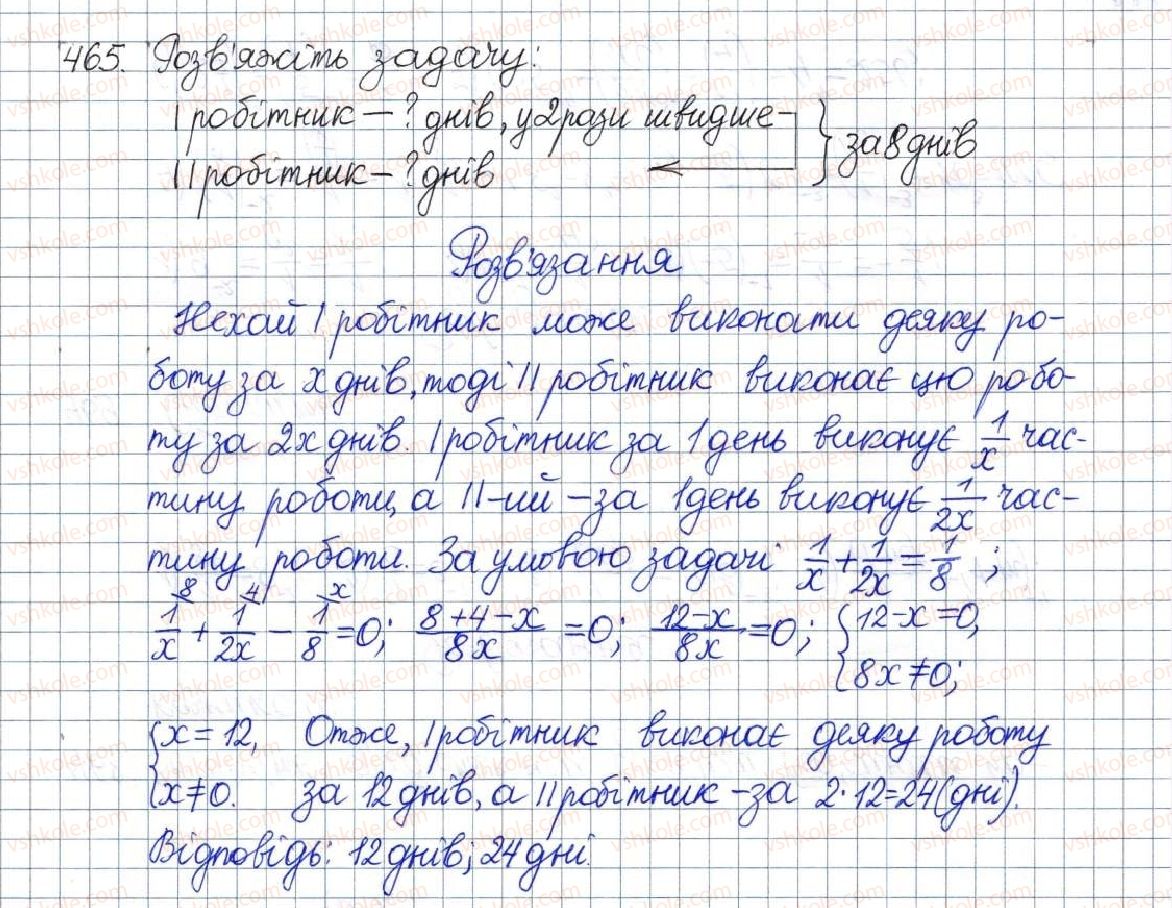 465. Розв'яжіть задачу:
І робітник — ? днів, у 2 рази швидше
ІІ робітник — ? днів
} за 8 днів
Розв'язання
Нехай І робітник може виконати деяку ро-
боту за x днів, тоді ІІ робітник виконає цю робо-
ту за 2x днів. І робітник за 1 день виконує 1/x час-
тину роботи, а ІІ-ий – за 1 день виконує 1/2x час-
тину роботи. За умовою задачі 1/x + 1/2x = 1/8 ;
8 4 x
1/x + 1/2x − 1/8 = 0; (8+4−x)/8x = 0; (12−x)/8x = 0; { 12−x=0,
8x≠0;
{ x=12, Отже, І робітник виконає деяку роботу
x≠0. за 12 днів, а ІІ робітник – за 2·12=24 (дні).
Відповідь: 12 днів; 24 дні.
vshkole.com